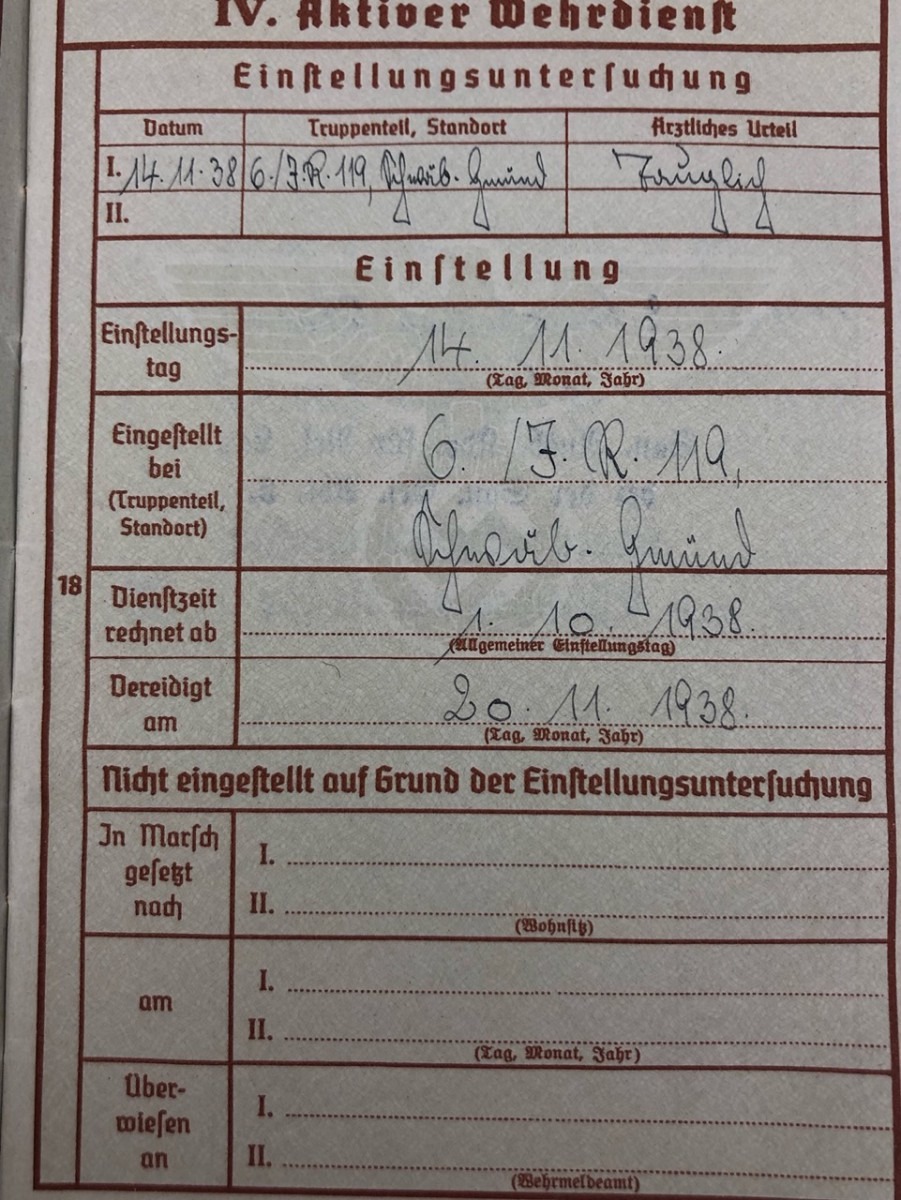 IV. Aktiver Wehrdienst
Einstellungsuntersuchung
Datum Truppenteil, Standort Ärztliches Urteil
I. 14. 11. 38 6./J.R. 119, Schwäb. Gmünd Tauglich
II.
Einstellung
Einstellungs-
tag
14. 11. 1938.
(Tag, Monat, Jahr)
Eingestellt
bei
(Truppenteil,
Standort)
6. /J. R. 119,
Schwäb. Gmünd
18
Dienstzeit
rechnet ab
1. 10. 1938.
(Allgemeiner Einstellungstag)
Vereidigt
am
20. 11. 1938.
(Tag, Monat, Jahr)
Nicht eingestellt auf Grund der Einstellungsuntersuchung
In Marsch
gesetzt
nach
I.
II.
(Wohnsitz)
am
I.
II.
(Tag, Monat, Jahr)
Über-
wiesen
an
I.
II.
(Wehrmeldeamt)